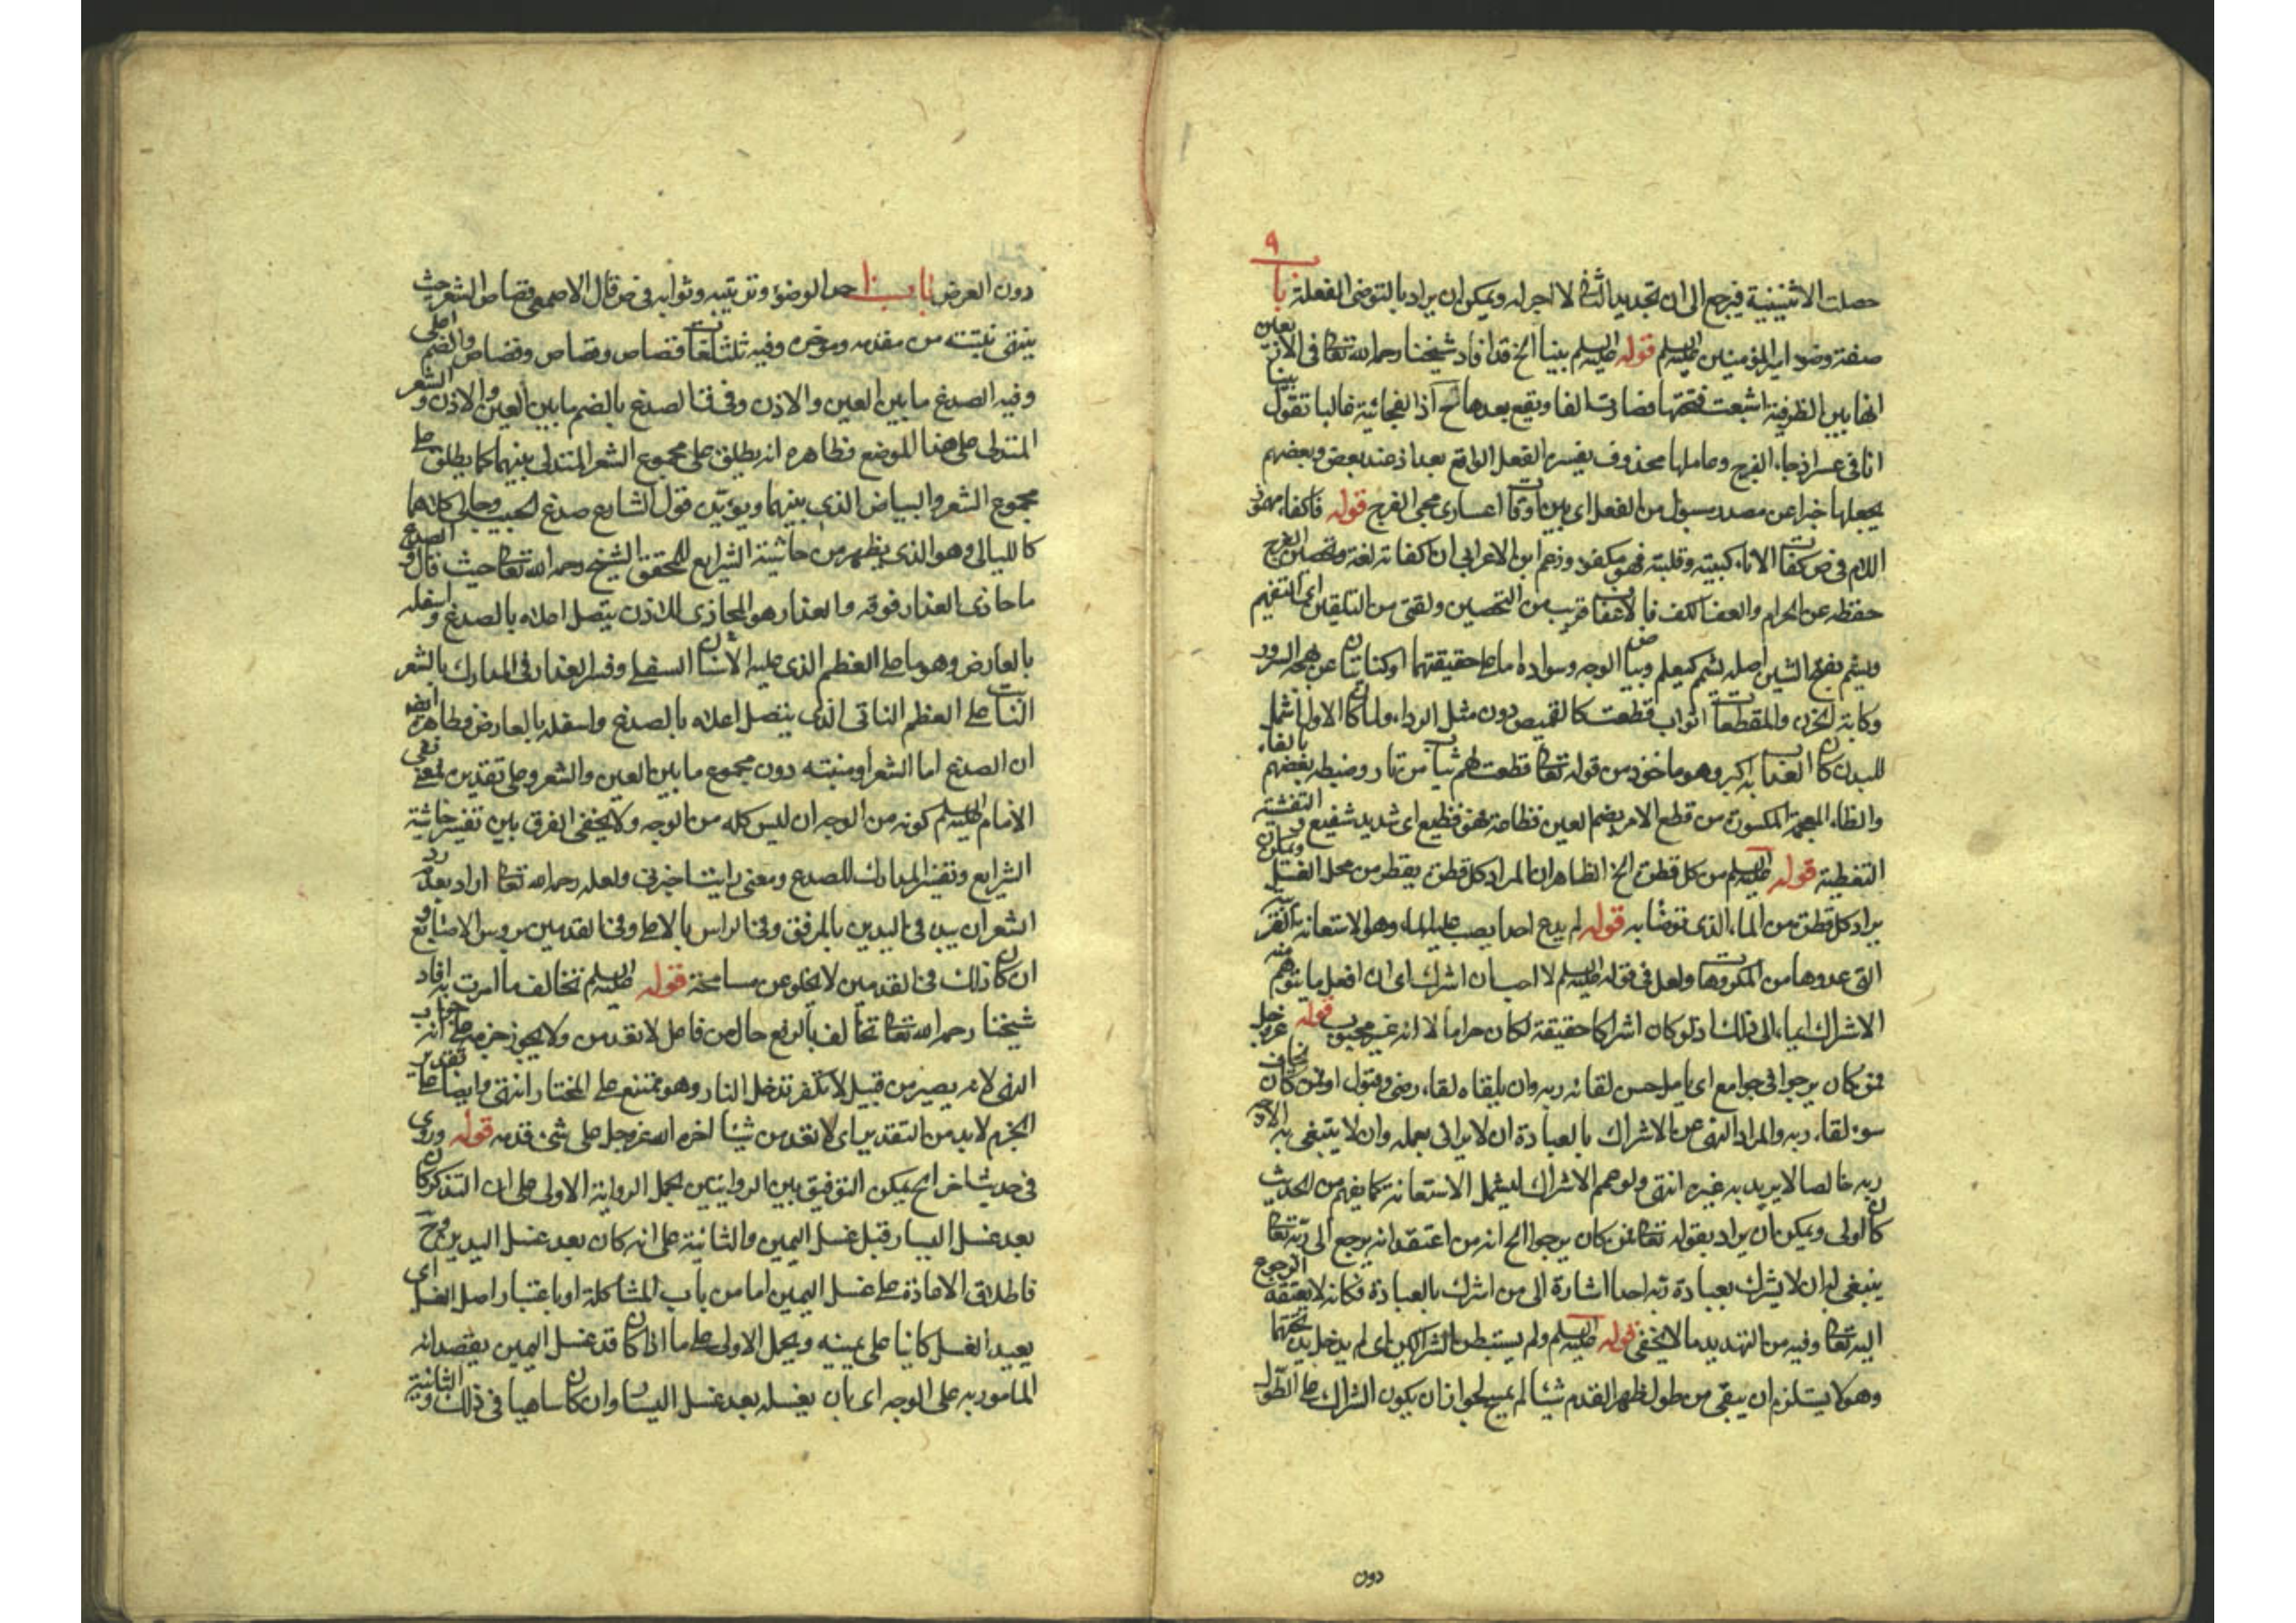 ٩
حصلت الاثنينية فيرجع الى ان تجديد الثالث لا اجر له ويمكن ان يراد بالتوضى الفعلة با
صفة وضوء امير المؤمنين عليه السلم قوله عليه السلم بينا الخ قد افاد شيخنا رحمه الله تعالى فى الاربعين
انها بين الظرفية اشبعت فتحتها فصارت الفا ويقع بعدها ح اذ الفجائية غالبا تقول بينا
انا فى عسر اذ جاء الفرج وعاملها محذوف يفسره الفعل الواقع بعد اذ عند بعض وبعضهم
يجعلها خبرا عن مصدر مسبوك من الفعل اى بين اوقات اعسارى مجى الفرج قوله فاكفاه مهموز
اللام فى ص كفات الاناء كببته وقلبته فهو مكفوء وزعم ابن الاعرابى ان اكفاته لغة وتحصين الفرج
حفظه عن الحرام والعفاف الكف فالاعفاف قريب من التحصين ولقنى من التلقين اى التفهيم
ويشم بفتح الشين اصله يشمم كيعلم وبياض الوجه وسواده اما على حقيقتهما او كنايتان عن بهجة السرور
وكابة الحزن والمقطعات اثواب قطعت كالقميص دون مثل الرداء ولما كان الاول اشمل
للبدن كان العذاب به اكبر وهو ماخوذ من قوله تعالى قطعت لهم ثياب من نار وضبطه بعضهم بالفاء
والظاء المعجمة المكسورة من فظع الامر بضم العين فظاعة فهو فظيع اى شديد شنيع والتغشية
التغطية قوله عليه السلم من كل قطرة الخ الظاهر ان المراد كل قطرة يقطر من محل الغسل ويمكن ان
يراد كل قطرة من الماء الذى توضأ به قوله لم يدع احدا يصب عليه الماء وهو الاستعانة
التى عدوها من المكروهات ولعل فى قوله عليه السلم لا احب ان اشرك اى ان افعل ما يتوهم منه
الاشراك ايماء الى ذلك اذ لو كان اشراكا حقيقة لكان حراما لا انه غير محبوب قوله عز وجل
فمن كان يرجوا فى جوامع اى يامل حسن لقائه ربه وان يلقاه لقاء رضى وقبول او فمن كان يخاف
سوء لقاء ربه والمراد النهى عن الاشراك بالعبادة ان لا يرائى بعمله وان لا يبتغى به الا وجه
ربه خالصا لا يريد به غيره انتهى ولو عمم الاشراك ليشمل الاستعانة كما يفهم من الحديث
كان اولى ويمكن ان يراد بقوله تعالى فمن كان يرجوا الخ انه من اعتقد انه يرجع الى ربه تعالى
ينبغى له ان لا يشرك بعبادة ربه احدا اشارة الى من اشرك بالعبادة فكانه لا يعتقد الرجوع
اليه تعالى وفيه من التهديد ما لا يخفى قوله عليه السلم ولم يستبطن الشراكين اى لم يدخل يده تحتهما
وهو لا يستلزم ان يبقى من طول ظهر القدم شيئا لم يمسح لجواز ان يكون الشراك على الطول
دون
دون العرض باب ١٠ حد الوضوء وترتيبه وثوابه فى ص قال الاصمعى قصاص الشعر حيث
ينتهى نبتته من مقدمه ومؤخره وفيه ثلث لغات قصاص وقصاص وقصاص والضم اعلى
وفيه الصدغ ما بين العين والاذن وفى قا الصدغ بالضم ما بين العين والاذن والشعر
المتدلى على هذا الموضع فظاهره انه يطلق على مجموع الشعر المتدلى بينهما كما يطلق على
مجموع الشعر والبياض الذى بينهما ويؤيده قول الشاعر صدغ الحبيب وحالى كلاهما
كالليالى وهو الذى يظهر من حاشية الشرايع للمحقق الشيخ رحمه الله تعالى حيث قال والصدغ
ما حاذى العذار فوقه والعذار هو المحاذى للاذن يتصل اعلاه بالصدغ واسفله
بالعارض وهو ما على العظم الذى عليه الاسنان السفلى وفسر العذار فى المدارك بالشعر
النابت على العظم الناتى الذى يتصل اعلاه بالصدغ واسفله بالعارض وظاهره ايضا
ان الصدغ اما الشعر او منبته دون مجموع ما بين العين والشعر وعلى تقدير فمعنى نفى
الامام عليه السلم كونه من الوجه ان ليس كله من الوجه ولا يخفى الفرق بين تفسير حاشية
الشرايع وتفسير المدارك للصدغ ومعنى رايت اخبرنى ولعله رحمه الله تعالى اراد بعد
الشعر ان يبدء فى اليدين بالمرفق وفى الراس بالاعلى وفى القدمين برؤس الاصابع و
ان كان ذلك فى القدمين لا يخلو عن مسامحة قوله عليه السلم تخالف ما امرت به افاد
شيخنا رحمه الله تعالى تخالف بالرفع حال من فاعل لا تقدمن ولا يجوز جزمه على انه جواب
النهى لانه يصير من قبيل لا تكفر تدخل النار وهو ممتنع على المختار انتهى وايضا على تقدير
الجزم لا بد من التقدير اى لا تقدمن شيئا اخره الله عز وجل على شئ قدمه قوله وروى
فى حديث اخر الخ يمكن التوفيق بين الروايتين بحمل الرواية الاولى على ان التذكر كان
بعد غسل اليسار قبل غسل اليمين والثانية على انه كان بعد غسل اليدين وح
فاطلاق الاعادة على غسل اليمين اما من باب المشاكلة او باعتبار اصل الغسل اى
يعيد الغسل كائنا على يمينه ويحمل الاولى على ما اذا كان قد غسل اليمين بقصد انه
المامور به على الوجه اى بان يغسله بعد غسل اليسار وان كان ساهيا فى ذلك والثانية